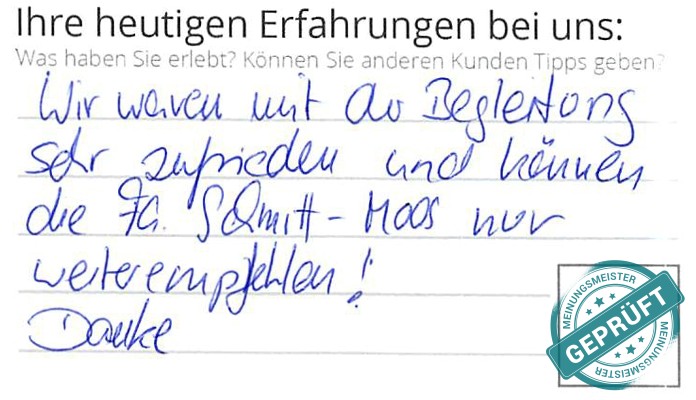 Ihre heutigen Erfahrungen bei uns:
Was haben Sie erlebt? Können Sie anderen Kunden Tipps geben?
Wir waren mit der Begleitung
sehr zufrieden und können
die Fa. Schmitt-Moos nur
weiterempfehlen!
Danke
MEINUNGSMEISTER
GEPRÜFT
MEINUNGSMEISTER
MEINUNGSMEISTER